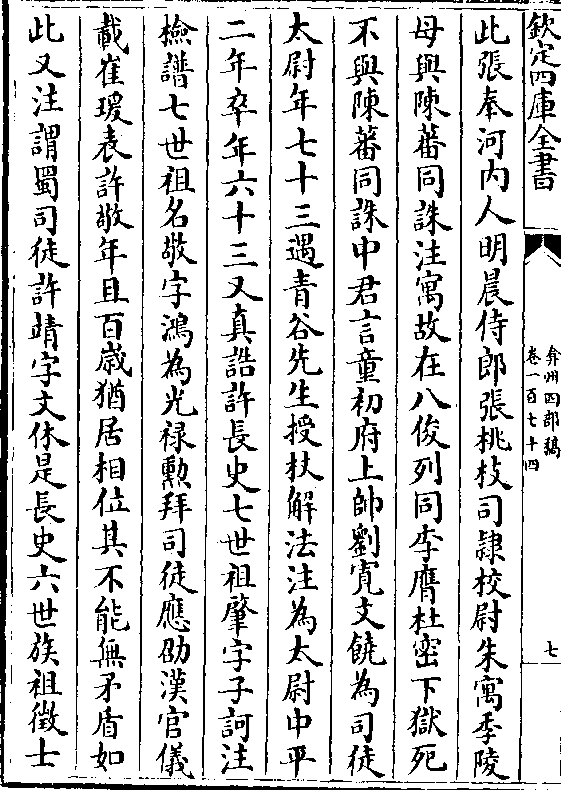 欽定四庫全書
弇州四部稿
卷一百七十四
七
此張奉河内人明晨侍郎張桃枝司隷校尉朱寓季陵
母與陳蕃同誅注寓故在八俊列同李膺杜密下獄死
不與陳蕃同誅中君言童初府上帥劉寛文饒為司徒
太尉年七十三遇青谷先生授杖解法注為太尉中平
二年卒年六十三又真誥許長史七世祖肇字子訶注
檢譜七世祖名敬字鴻為光禄勲拜司徒應劭漢官儀
載崔瑗表許敬年且百歳猶居相位其不能無矛盾如
此又注謂蜀司徒許靖字文休是長史六世族祖徵士